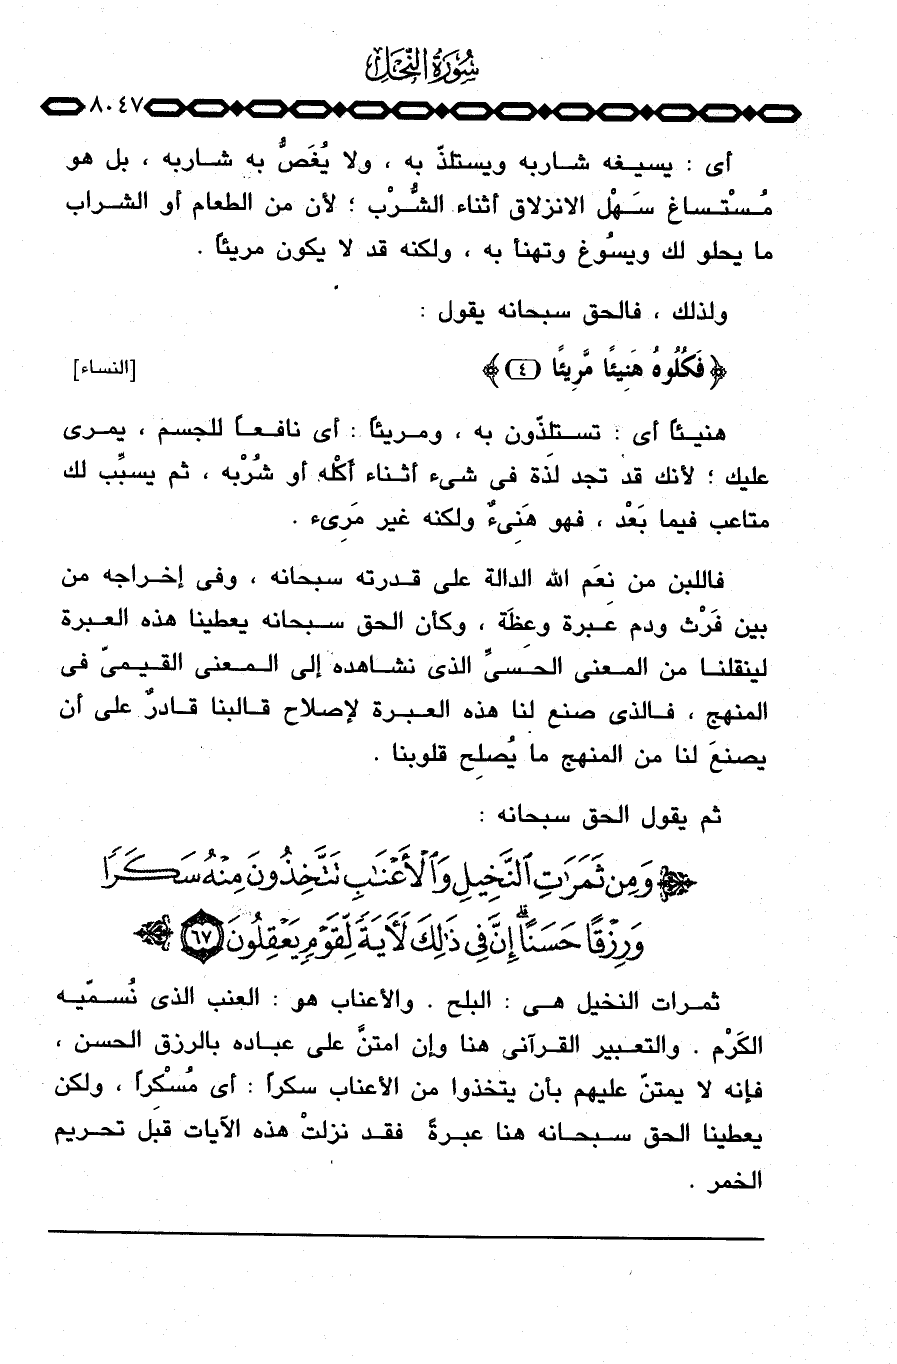 سُورَةُ النَّحْلِ
٨٠٤٧
أى : يسيغه شاربه ويستلذّ به ، ولا يُغَصُّ به شاربه ، بل هو
مُسْتساغ سَهْل الانزلاق أثناء الشُّرْب ؛ لأن من الطعام أو الشراب
ما يحلو لك ويسُوغ وتهنأ به ، ولكنه قد لا يكون مريئاً .
ولذلك ، فالحق سبحانه يقول :
﴿ فَكُلُوهُ هَنِيئًا مَّرِيئًا (٤) ﴾ [النساء]
هنيئاً أى : تستلذّون به ، ومريئاً : أى نافعاً للجسم ، يمرى
عليك ؛ لأنك قد تجد لذة فى شىء أثناء أَكْله أو شُرْبه ، ثم يسبِّب لك
متاعب فيما بَعْد ، فهو هَنِىءٌ ولكنه غير مَرِىء .
فاللبن من نِعَم الله الدالة على قدرته سبحانه ، وفى إخراجه من
بين فَرْث ودم عبرة وعِظَة ، وكأن الحق سبحانه يعطينا هذه العبرة
لينقلنا من المعنى الحسىِّ الذى نشاهده إلى المعنى القيمىّ فى
المنهج ، فالذى صنع لنا هذه العبرة لإصلاح قالبنا قادرٌ على أن
يصنعَ لنا من المنهج ما يُصلِح قلوبنا .
ثم يقول الحق سبحانه :
﴿ وَمِن ثَمَرَٰتِ ٱلنَّخِيلِ وَٱلْأَعْنَٰبِ تَتَّخِذُونَ مِنْهُ سَكَرًا
وَرِزْقًا حَسَنًا ۗ إِنَّ فِى ذَٰلِكَ لَـَٔايَةً لِّقَوْمٍ يَعْقِلُونَ ٦٧ ﴾
ثمرات النخيل هى : البلح . والأعناب هو : العنب الذى نُسمّيه
الكَرْم . والتعبير القرآنى هنا وإن امتنَّ على عباده بالرزق الحسن ،
فإنه لا يمتنّ عليهم بأن يتخذوا من الأعناب سكراً : أى مُسْكِراً ، ولكن
يعطينا الحق سبحانه هنا عبرةً فقد نزلتْ هذه الآيات قبل تحريم
الخمر .